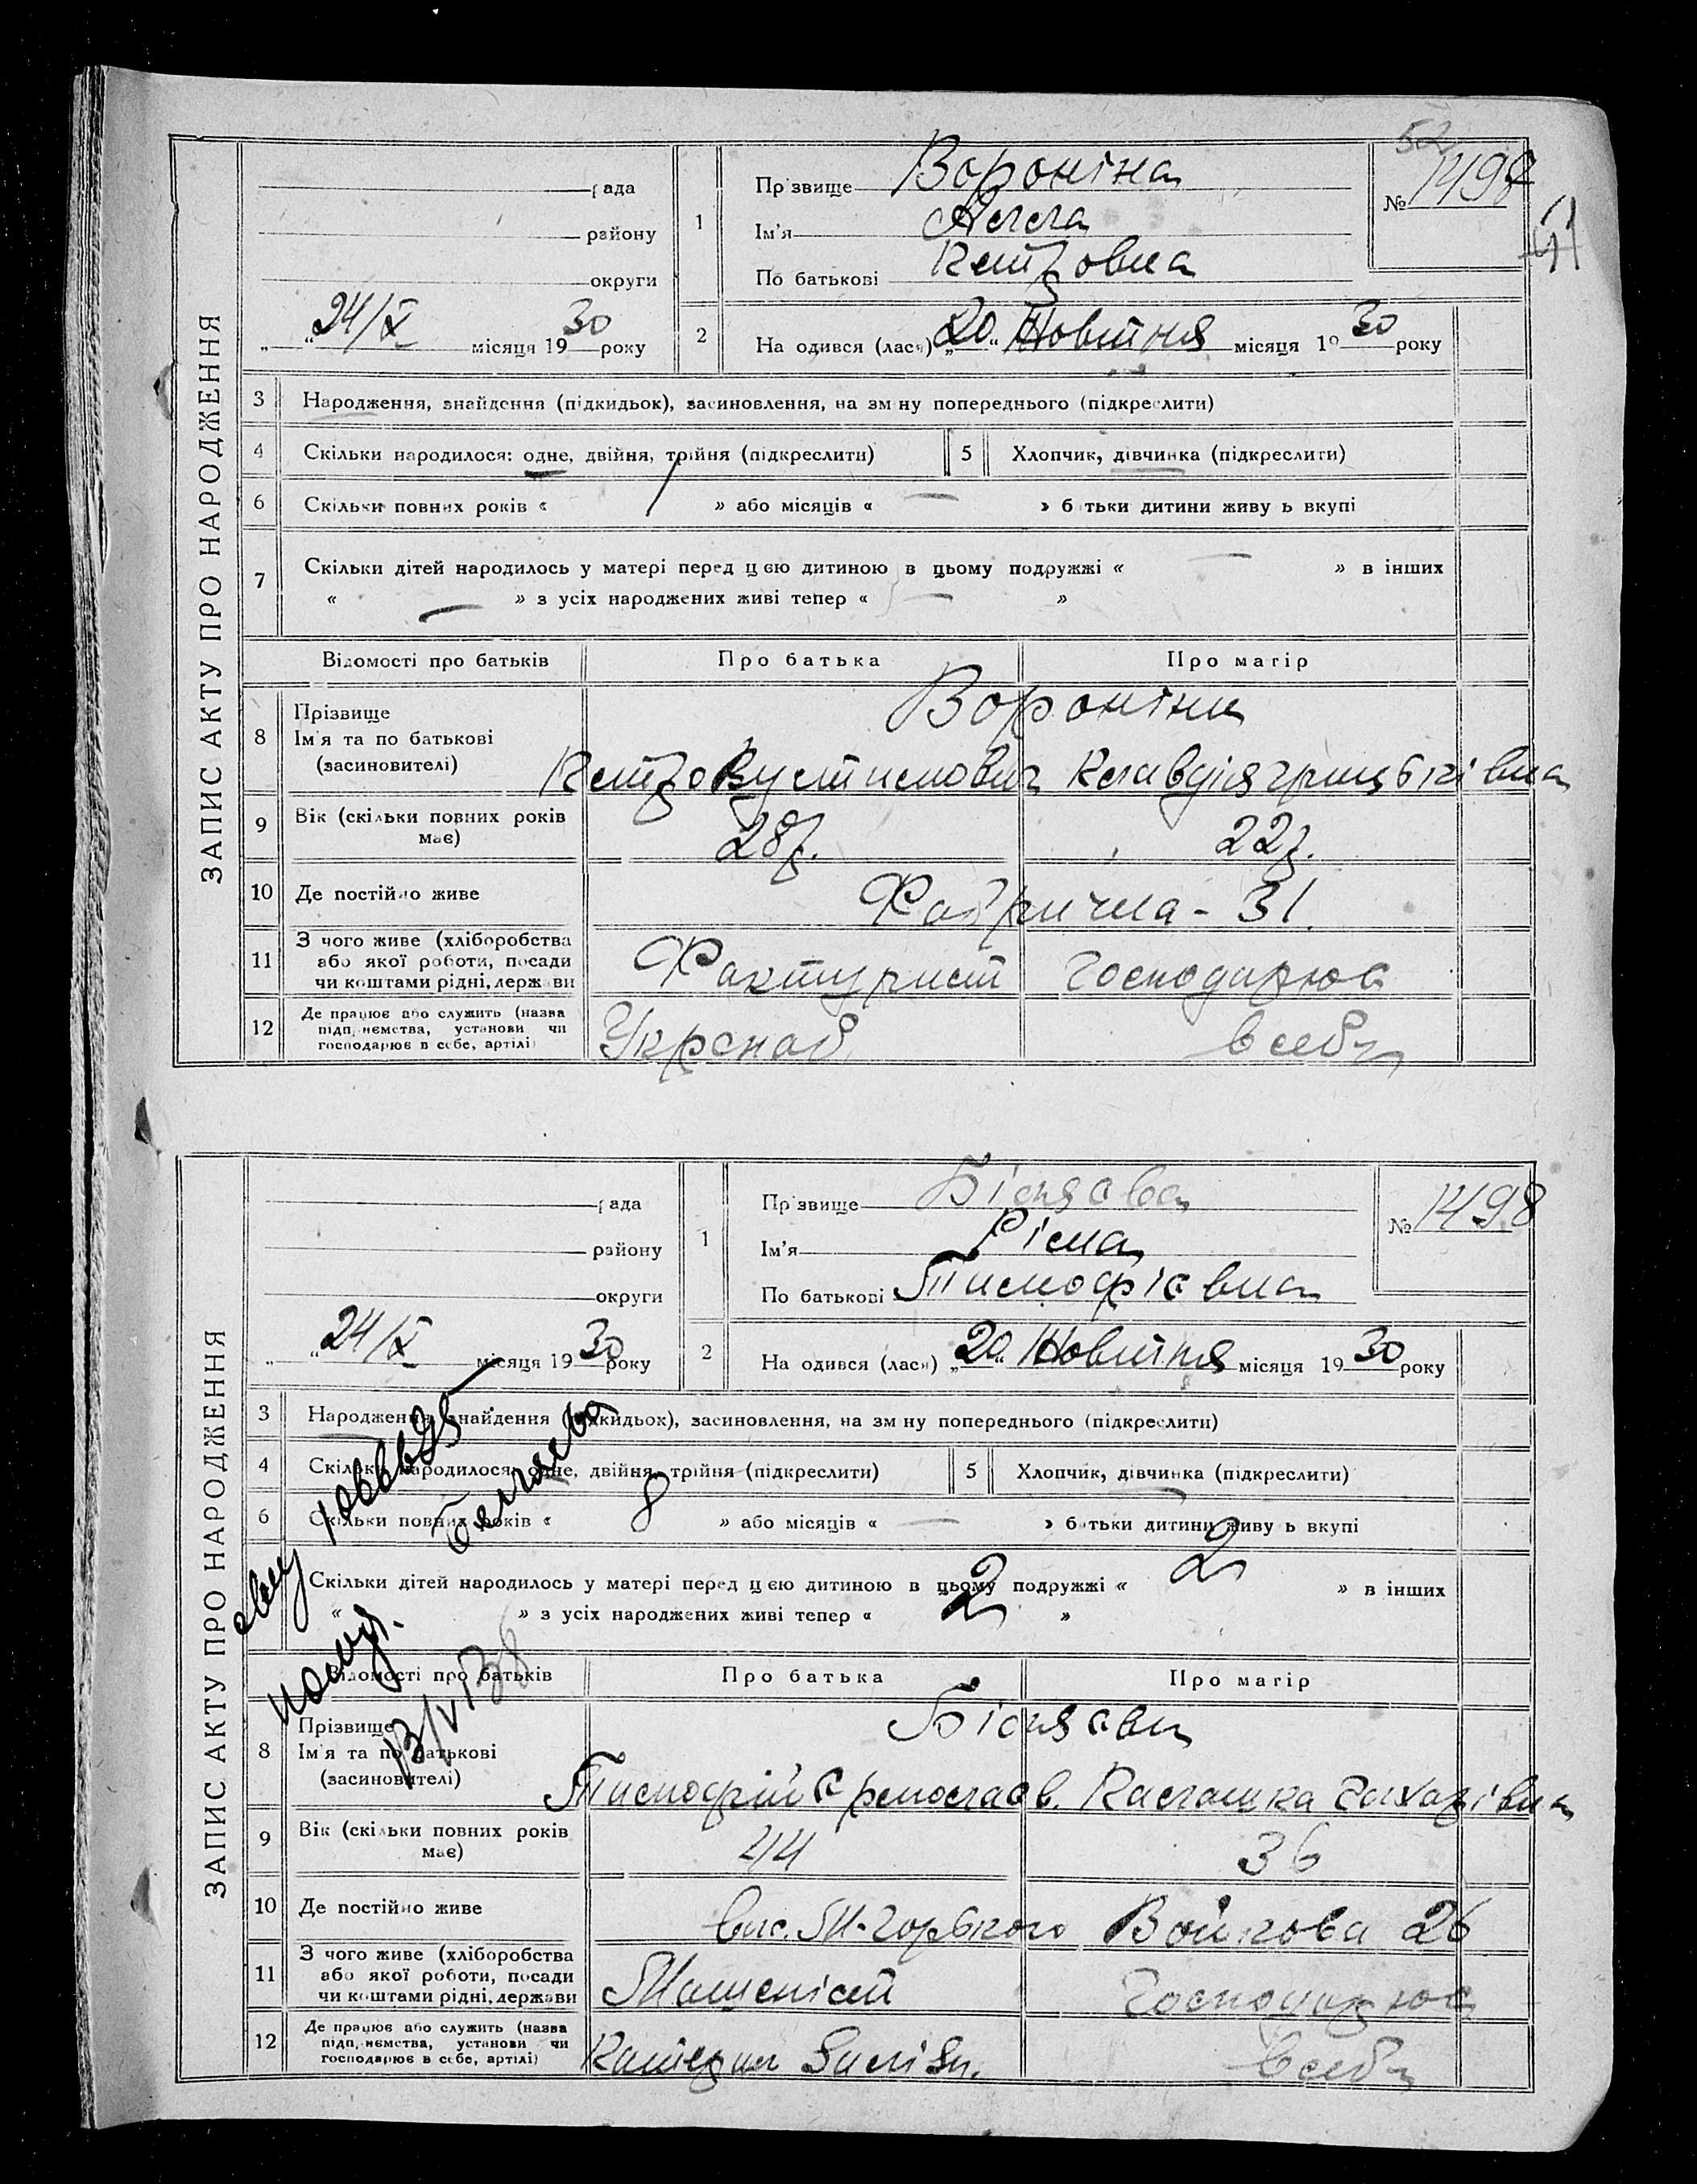 52
ЗАПИС АКТУ ПРО НАРОДЖЕННЯ
рада
району
округи
„ “ 24/X місяця 1930 року
1
Прізвище Вороніна
Ім'я Алла
По батькові Петровна
№ 1497
2
На одився (лася) „20“ Жовтня місяця 1930 року
3 Народження, знайдення (підкидьок), засиновлення, на зміну попереднього (підкреслити)
4 Скільки народилося: одне, двійня, трійня (підкреслити)
5 Хлопчик, дівчинка (підкреслити)
6 Скільки повних років « 1 » або місяців « — » батьки дитини живуть вкупі
7 Скільки дітей народилось у матері перед цією дитиною в цьому подружжі « — » в інших
« — » з усіх народжених живі тепер « — »
Відомості про батьків Про батька Про матір
8 Прізвище
Ім'я та по батькові
(засиновителі)
Вороніни
Петро Устимович Клавдія Григорівна
9 Вік (скільки повних років має) 28 р. 22 р.
10 Де постійно живе Фабрична - 31.
11 З чого живе (хліборобства
або якої роботи, посади
чи коштами рідні, держави
Фактурист Господарює
12 Де працює або служить (назва
підприємства, установи чи
господарює в себе, артілі)
Укрснаб в себе
ЗАПИС АКТУ ПРО НАРОДЖЕННЯ
рада
району
округи
„ “ 24/X місяця 1930 року
1
Прізвище Біляєва
Ім'я Ріма
По батькові Тимофієвна
№ 1498
2
На одився (лася) „20“ Жовтня місяця 1930 року
3 Народження, знайдення (підкидьок), засиновлення, на зміну попереднього (підкреслити)
4 Скільки народилося: одне, двійня, трійня (підкреслити)
5 Хлопчик, дівчинка (підкреслити)
6 Скільки повних років « 8 » або місяців « — » батьки дитини живуть вкупі
Скільки дітей народилось у матері перед цією дитиною в цьому подружжі « 2 » в інших
« » з усіх народжених живі тепер « 2 »
Беляева
Відомості про батьків Про батька Про матір
8 Прізвище
Ім'я та по батькові
(засиновителі)
Біляєви
Тимофій Єрмолаєв. Захарівна
9 Вік (скільки повних років має) 44 36
10 Де постійно живе вис. М-Горького Войкова 26
11 З чого живе (хліборобства
або якої роботи, посади
чи коштами рідні, держави
Машеніст Господарює
12 Де працює або служить (назва
підприємства, установи чи
господарює в себе, артілі)
Катерин Заліз. в себе